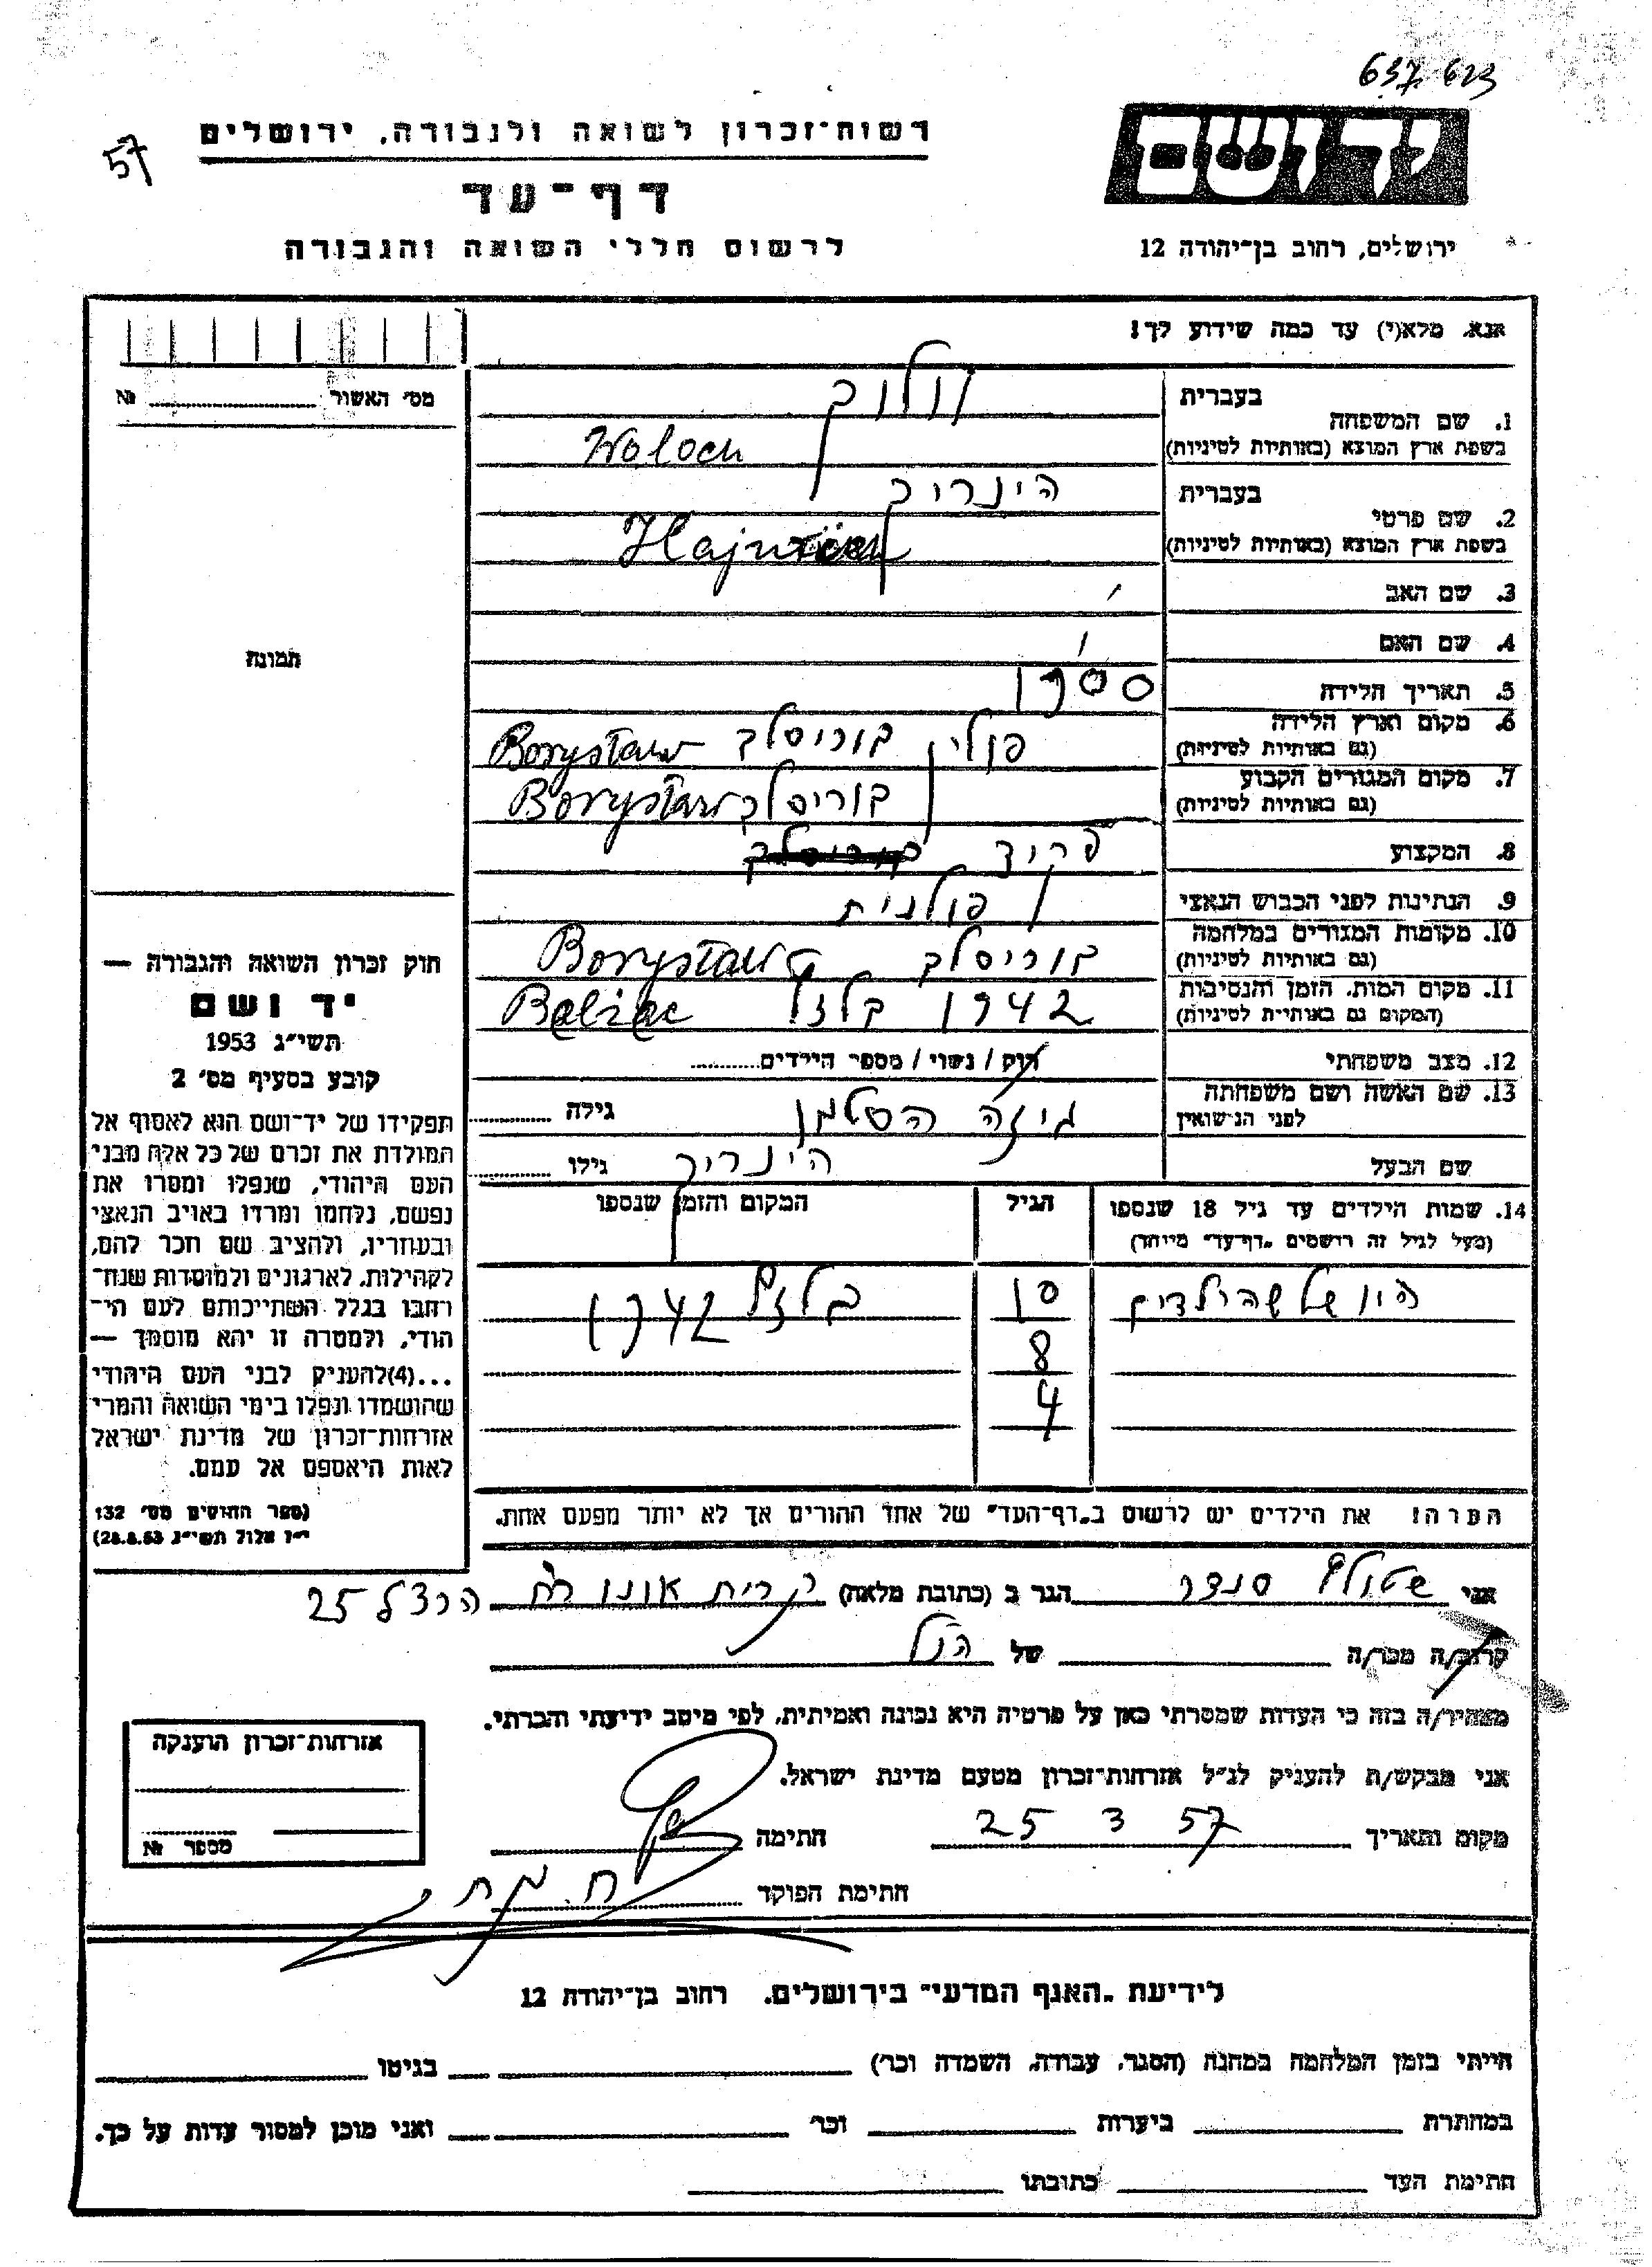 637 623
57
יד ושם
רשות־זכרון לשואה ולגבורה, ירושלים
דף־עד
לרשום חללי השואה והגבורה
ירושלים, רחוב בן־יהודה 12
אנא, מלא(י) עד כמה שידוע לך!
מס׳ האשור № 
1. שם המשפחה
בעברית וולוך
בשפת ארץ המוצא (באותיות לטיניות) Woloch
2. שם פרטי
בעברית הינרוך
בשפת ארץ המוצא (באותיות לטיניות)
3. שם האב
4. שם האם
5. תאריך הלידה 1900
6. מקום וארץ הלידה
(גם באותיות לטיניות) פולין בוריסלב Borystaw
7. מקום המגורים הקבוע
(גם באותיות לטיניות) בוריסלב Borystaw
8. המקצוע פקיד
9. הנתינות לפני הכבוש הנאצי פולנית
10. מקומות המגורים במלחמה
(גם באותיות לטיניות) בוריסלב Borystaw
11. מקום המות, הזמן והנסיבות
(המקום גם באותיות לטיניות) 1942 בלזץ Belzec
12. מצב משפחתי רוק / נשוי / מספר הילדים
13. שם האשה ושם משפחתה
לפני הנישואין גיזה הסלמן גילה
שם הבעל הינריך גילו
14. שמות הילדים עד גיל 18 שנספו
(מעל לגיל זה רושמים „דף־עד״ מיוחד)
הגיל
המקום והזמן שנספו
היו שלשה ילדים 10 בלזץ 1942
8
4
הערה! את הילדים יש לרשום ב„דף־העד״ של אחד ההורים אך לא יותר מפעם אחת.
תמונה
חוק זכרון השואה והגבורה —
יד ושם
תשי״ג 1953
קובע בסעיף מס׳ 2
תפקידו של יד־ושם הוא לאסוף אל
המולדת את זכרם של כל אלה מבני
העם היהודי, שנפלו ומסרו את
נפשם, נלחמו ומרדו באויב הנאצי
ובעוזריו, ולהציב שם וזכר להם,
לקהילות, לארגונים ולמוסדות שנח־
רבו בגלל השתייכותם לעם הי־
הודי, ולמטרה זו יהא מוסמך —
...(4) להעניק לבני העם היהודי
שהושמדו ונפלו בימי השואה והמרי
אזרחות־זכרון של מדינת ישראל
לאות היאספם אל עמם.
(ספר החוקים מס׳ 132
י״ז אלול תשי״ג 28.8.53)
אני שטולף סנדר הגר ב (כתובת מלאה) קרית אונו רח׳ הרצל 25
קרוב/ה מכר/ה של הנ״ל
מצהיר/ה בזה כי העדות שמסרתי כאן על פרטיה היא נכונה ואמיתית, לפי מיטב ידיעתי והכרתי.
אני מבקש/ת להעניק לנ״ל אזרחות־זכרון מטעם מדינת ישראל.
מקום ותאריך 25 3 57 חתימה
חתימת הפוקד
אזרחות־זכרון הוענקה
מספר №
לידיעת „האגף המדעי״ בירושלים, רחוב בן־יהודה 12
הייתי בזמן המלחמה במחנה (הסגר, עבודה, השמדה וכו׳) בגיטו
במחתרת ביערות וכו׳ ואני מוכן למסור עדות על כך.
חתימת העד כתובתו